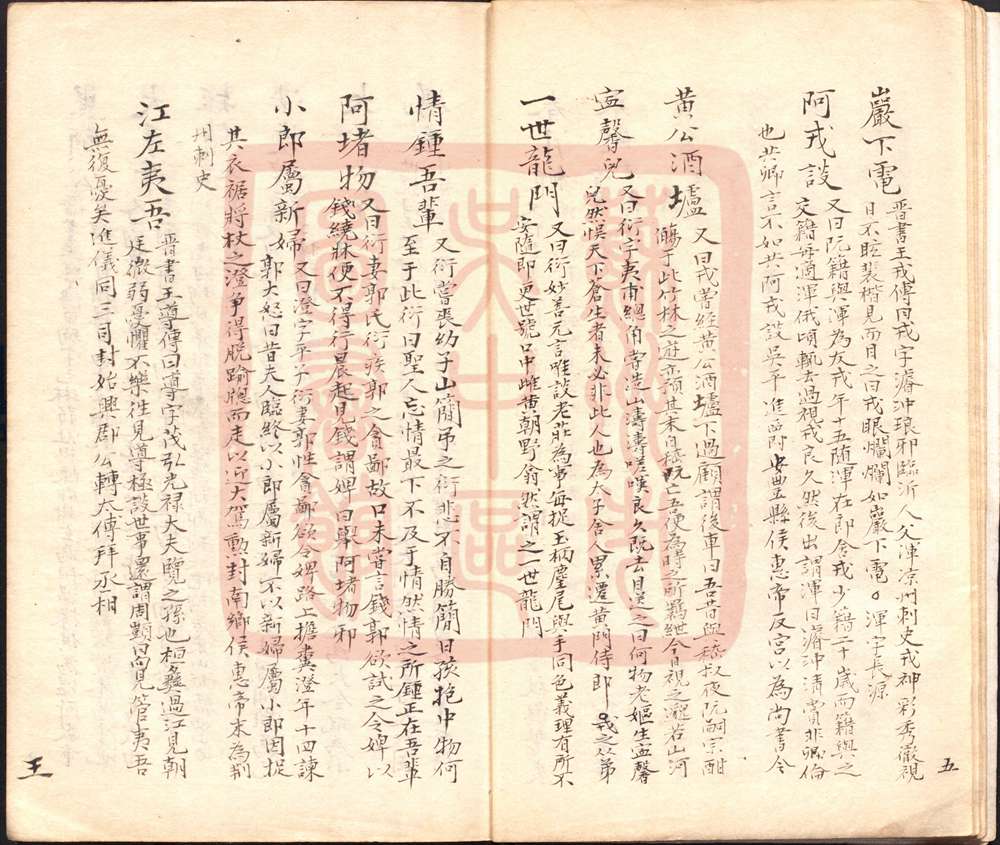 五
巖下電 晋書王戎傳曰戎字濬沖琅邪臨沂人父渾涼州刺史戎神彩秀徹視
日不眩裴楷見而目之曰戎眼爛爛如巖下電。渾字長源
阿戎談 又曰阮籍與渾為友戎年十五隨渾在郎舍戎少籍二十歲而籍與之
交籍每適渾俄頃輒去過視戎良久然後出謂渾曰濬沖清賞非卿倫
也共卿言不如共阿戎談吳平進爵安豐縣侯惠帝反宮以為尚書令
黃公酒壚 又曰戎嘗經黃公酒壚下過顧謂後車曰吾昔與嵇叔夜阮嗣宗酣
觴于此竹林之遊亦預其末自嵇阮亡吾便為時之所羈紲今日視之邈若山河
寍馨兒 又曰衍字夷甫總角嘗造山濤濤嗟嘆良久既去目送之曰何物老嫗生寍馨
兒然悞天下蒼生者未必非此人也為太子舍人累遷黃門侍郎 戎之從弟
一世龍門 又曰衍妙善元言唯談老莊為事每捉玉柄麈尾與手同色義理有所不
安隨即更世號口中雌黃朝野翕然謂之一世龍門
情鍾吾輩 又衍嘗喪幼子山簡弔之衍悲不自勝簡曰孩抱中物何
至于此衍曰聖人忘情最下不及于情然情之所鍾正在吾輩
阿堵物 又曰衍妻郭氏衍疾郭之貪鄙故口未嘗言錢郭欲試之令婢以
錢繞牀使不得行晨起見錢謂婢曰舉阿堵物邪
小郎屬新婦 又曰澄字平子衍妻郭性貪鄙欲令婢路上擔糞澄年十四諫
郭大怒曰昔夫人臨終以小郎屬新婦不以新婦屬小郎因捉
其衣裾將杖之澄爭得脫踰牕而走以迎大駕勲封南鄉侯惠帝末為荆
州刺史
江左夷吾 晋書王導傳曰導字茂弘光祿大夫覽之孫也桓彝過江見朝
廷微弱憂懼不樂往見導極談世事還謂周顗曰向見管夷吾
無復憂矣進儀同三司封始興郡公轉太傅拜丞相
王